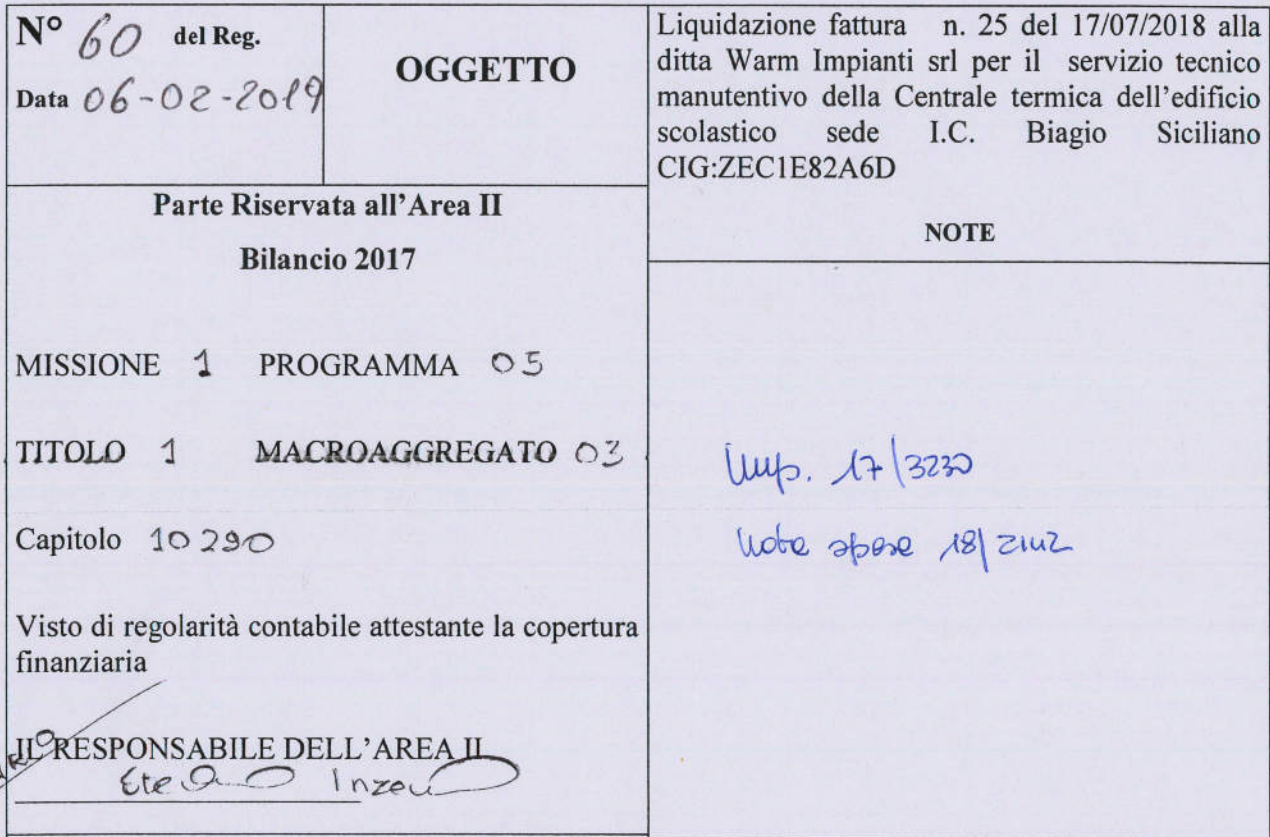 N° 60 del Reg.
Data 06-02-2019
OGGETTO
Liquidazione fattura n. 25 del 17/07/2018 alla
ditta Warm Impianti srl per il servizio tecnico
manutentivo della Centrale termica dell'edificio
scolastico sede I.C. Biagio Siciliano
CIG:ZEC1E82A6D
NOTE
Parte Riservata all'Area II
Bilancio 2017
MISSIONE 1 PROGRAMMA 05
TITOLO 1 MACROAGGREGATO 03
Capitolo 10290
Imp. 17/3230
Visto di regolarità contabile attestante la copertura
finanziaria
IL RESPONSABILE DELL'AREA II